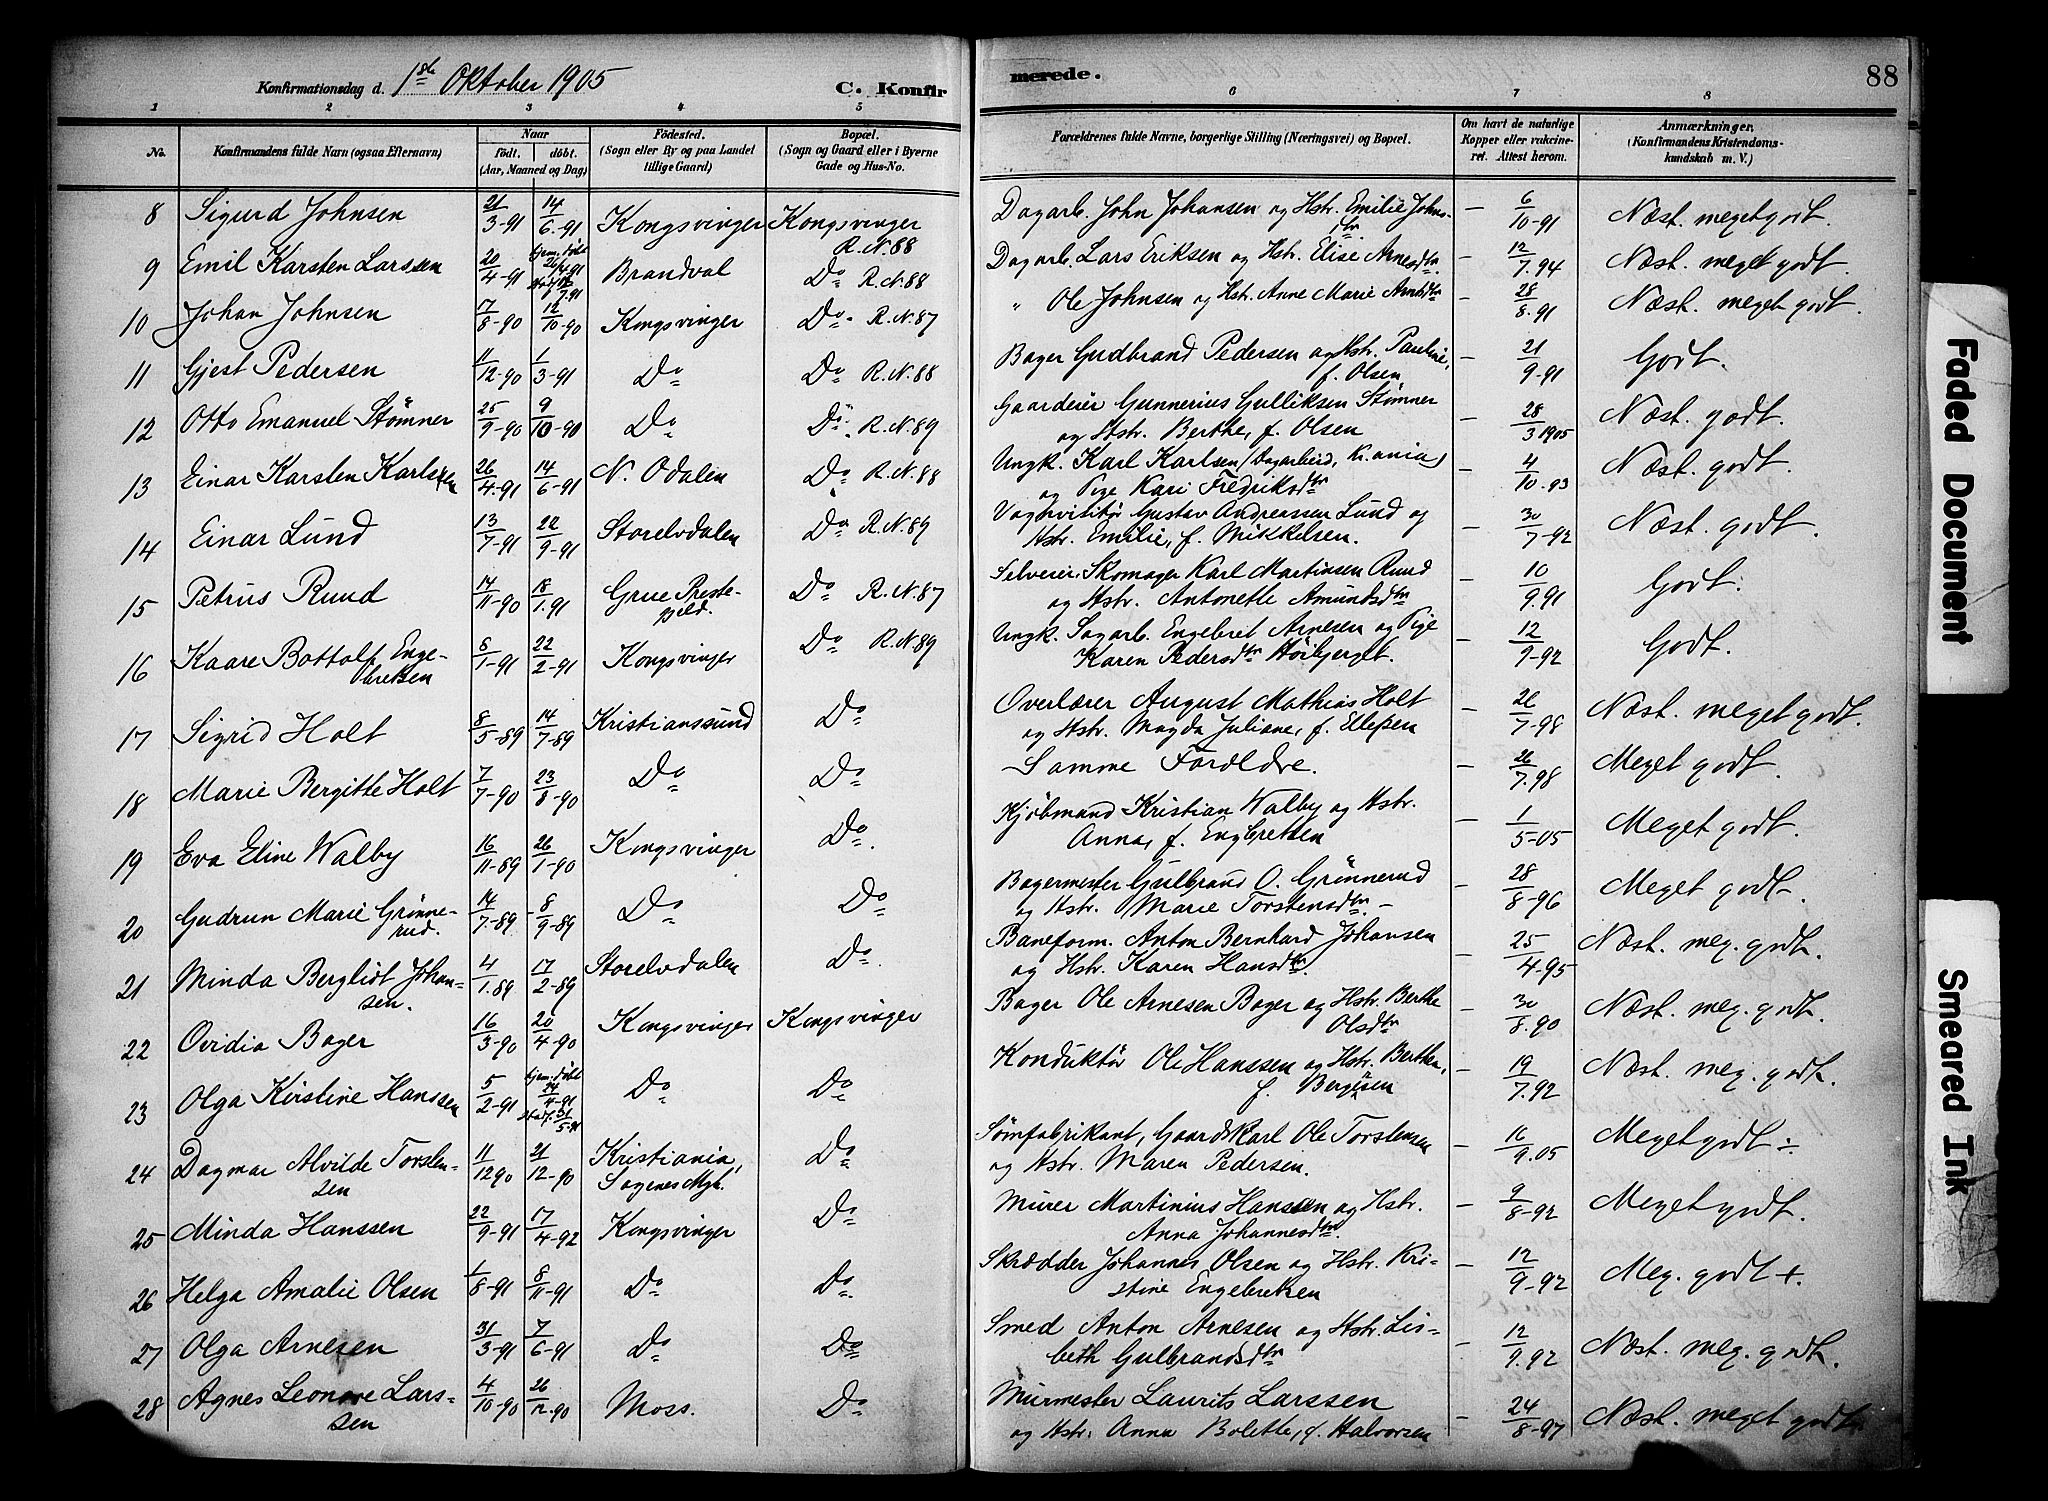 Konfirmationsdag d. 1ste Oktober 1905 C. Konfirmerede. 88
1 2 3 4 5 6 7 8
No. Konfirmandens fulde Navn (ogsaa Efternavn) Naar født. døbt. (Aar, Maaned og Dag) Fødested. (Sogn eller By og paa Landet tillige Gaard) Bopæl. (Sogn og Gaard eller i Byerne Gade og Hus-No. Forældrenes fulde Navne, borgerlige Stilling (Næringsvei) og Bopæl. Om havt de naturlige Kopper eller vakcineret. Attest herom. Anmærkninger, (Konfirmandens Kristendomskundskab m. V.)
8 Sigurd Johnsen 21/3-91 14/6-91 Kongsvinger Kongsvinger R.N.88 Dagarb. John Johansen og Hstr. Emilie Johnsdtr — 6/10-91 Næst. meget godt.
9 Emil Karsten Larssen 20/4-91 hjem. døbt 26/4-91 Brandval Do R.N.88 Dagarb. Lars Eriksen og Hstr. Elise Arnesdtr. — 12/7.94 Næst. meget godt.
10 Johan Johnsen 7/8-90 12/10-90 Kongsvinger Do. R.N.87 " Ole Johnsen og Hstr. Anne Marie Arntsdtr — 28/8.91 Næst. meget godt.
11 Gjest Pedersen 11/12-90 1/3-91 Do Do R.N.88 Bager Gudbrand Pedersen og Hstr. Pauline, f. Olsen — 21/9-91 Godt.
12 Otto Emanuel Stømner 25/9-90 9/10-90 Do Do. R.N.89 Gaardeier Gunnerius Gulliksen Stømner og Hstr. Berthe, f. Olsen — 28/3 1905 Næst. godt.
13 Einar Karsten Karlsen 26/4-91 14/6-91 N. Odalen Do R.N.88 Ungk. Karl Karlsen (Dagarbeid, Kr.ania) og Pige Kari Fredriksdtr — 4/10-93 Næst. godt.
14 Einar Lund 13/7-91 22/9-91 Storelvdalen Do R.N.89 Vognvisitør Gustav Andreassen Lund og Hstr. Emilie, f. Mikkelsen. — 30/7-92 Næst. godt.
15 Petrus Ruud 14/11-90 18/1.91 Grue Prestegjeld. Do R.N.87 Selveier, Skomager Karl Martinsen Ruud og Hstr. Antonette Amundsdtr — 10/9.91 Godt.
16 Kaare Bottolf Engebretsen 8/1-91 22/2-91 Kongsvinger Do R.N.89 Ungk. Sagarb. Engebret Arnesen og Pige Karen Pedersdtr Høibjerget. — 12/9-92 Godt.
17 Sigrid Holt 8/5-89 14/7-89 Kristianssund Do Overlærer August Mathias Holt og Hstr. Magda Juliane, f. Ellefsen — 26/7-98 Næst. meget godt.
18 Marie Bergitte Holt 7/7-90 23/8-90 Do Do — Samme Forældre. — 26/7.98 Meget godt.
19 Eva Eline Walby 16/11-89 26/1-90 Kongsvinger Do. Kjøbmand Kristian Walby og Hstr. Anna, f. Engbretsen — 1/5-05 Meget godt.
20 Gudrun Marie Grønnerud. 14/7-89 8/9-89 Do Do Bagermester Gulbrand O. Grønnerud og Hstr. Marie Torstensdtr. — 28/8-96 Meget godt.
21 Minda Bergliot Johansen. 4/1.89 17/2-89 Storelvdalen Do. Baneform. Anton Bernhard Johansen og Hstr. Karen Hansdtr. — 25/4-95 Næst. meg. godt.
22 Ovidia Bager 16/3-90 20/4-90 Kongsvinger Kongsvinger Bager Ole Arnesen Bager og Hstr. Berthe Olsdtr — 30/8.90 Næst. meg. godt.
23 Olga Kirstine Hanssen 5/2-91 hjem. døbt 24/4-91 Stadf. 31/5-91 Do Do Konduktør Ole Hanssen og Hstr. Berthea, f. Bergersen — 19/7.92 Næst. meg. godt.
24 Dagmar Alvilde Torstensen 11/12 90 21/12-90 Kristiania, Sagenes Mgh. Do Sømfabrikant, Gaardskarl Ole Torstensen og Hstr. Maren Pedersen. — 16/9.05 Meget godt ÷
25 Minda Hanssen 22/9-91 17/4-92 Kongsvinger Do Murer Martinius Hanssen og Hstr. Anna Johannesdtr. — 9/8-92 Meget godt.
26 Helga Amalie Olsen 1/8-91 8/11-91 Do Do. Skrædder Johannes Olsen og Hstr. Kristine Engebretsen — 12/9-92 Meg. godt +.
27 Olga Arnesen 31/3-91 7/6-91 Do Do Smed Anton Arnesen og Hstr. Lisbeth Gulbrandsdtr — 12/9.92 Næst. meg. godt.
28 Agnes Leonore Larssen 4/10-90 26/12.90 Moss. Do Murmester Laurits Larssen og Hstr. Anna Bolette, f. Halvorsen — 24/8-97 Næst. meget godt
Faded Document
Smeared Ink